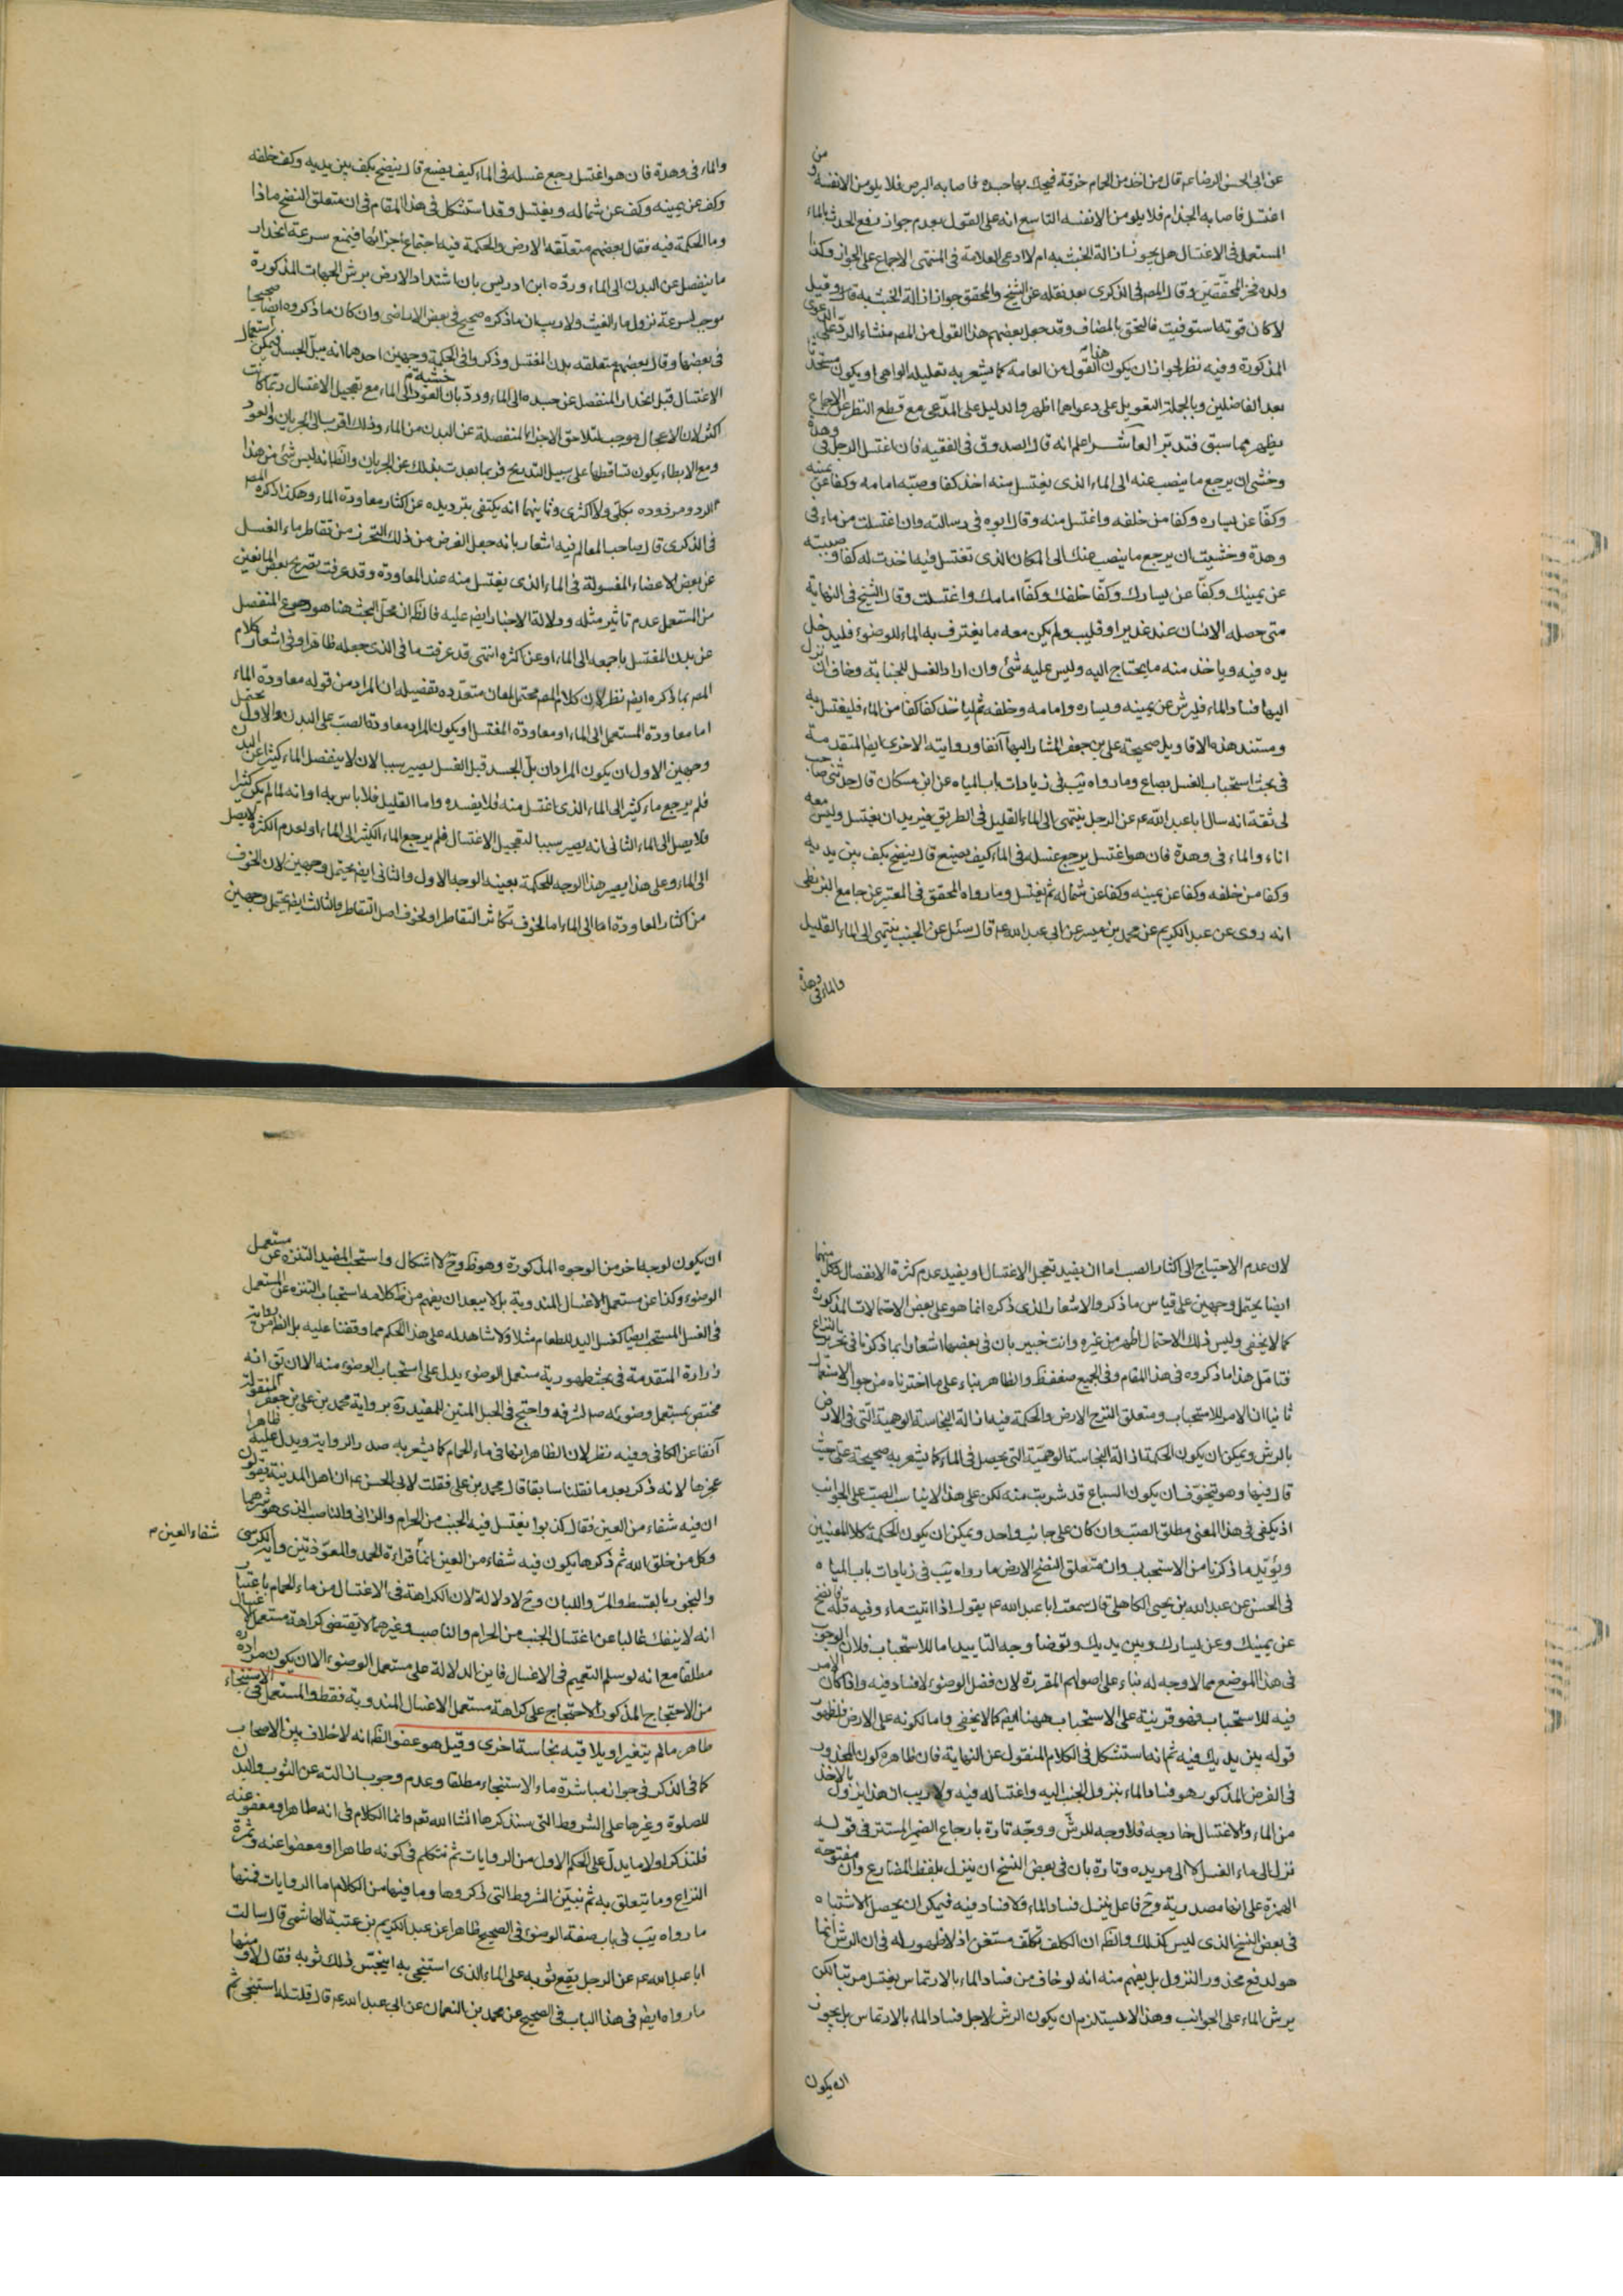 عن ابي الحسن الرضا عم قال من اخذ من الحمام خزفة فيحك بها جسده فاصابه البرص فلا يلومن الا نفسه ومن
اغتسل فاصابه الجذام فلا يلومن الا نفسه التاسع انه على القول بعدم جواز رفع الحدث بالماء
المستعمل في الاغتسال هل يجوز ازالة الخبث به ام لا ادعى العلامة في المنتهى الاجماع على الجواز وكذا
ولده فخر المحققين وقال المصم في الذكرى بعد نقله عن الشيخ والمحقق جواز ازالة الخبث به قال وقيل
لا كان قوته استوفيت فالتحق بالمضاف وقد جعل بعضهم هذا القول من المصم منشاء الرد على الدعوى
المذكورة وفيه نظر لجواز ان يكون هذا القول من العامه كما يشعر به تعليله الواهي او يكون متجدد
بعد الفاضلين وبالجملة التعويل على دعواهما اظهر والدليل على المدعى مع قطع النظر عن الاجماع
يظهر مما سبق فتدبر العاشر اعلم انه قال الصدوق في الفقيه فان اغتسل الرجل في وهدة
وخشي ان يرجع ما ينصب عنه الى الماء الذي يغتسل منه اخذ كفا وصبه امامه وكفا عن يمينه
وكفا عن يساره وكفا من خلفه واغتسل منه وقال ابوه في رسالته وان اغتسلت من ماء في
وهدة وخشيت ان يرجع ما ينصب عنك الى المكان الذي تغتسل فيه اخذت له كفا وصببته
عن يمينك وكفا عن يسارك وكفا خلفك وكفا امامك واغتسلت وقال الشيخ في النهاية
متى حصل الانسان عند غدير او قليب ولم يكن معه ما يغترف به الماء للوضوء فليدخل
يده فيه وياخذ منه ما يحتاج اليه وليس عليه شئ وان اراد الغسل للجنابة وخاف ان نزل
اليها فساد الماء فليرش عن يمينه ويساره وامامه وخلفه ثم لياخذ كفا كفا من الماء فليغتسل به
ومستند هذه الاقاويل صحيحة علي بن جعفر المشار اليها آنفا وروايته الاخرى ايضا المتقدمة
في بحث استحباب الغسل بصاع وما رواه يب في زيادات باب المياه عن ابن مسكان قال حدثني صاحب
لي ثقة انه سال ابا عبد الله عم عن الرجل ينتهي الى الماء القليل في الطريق فيريد ان يغتسل وليس معه
اناء والماء في وهدة فان هو اغتسل يرجع غسله في الماء كيف يصنع قال ينضح بكف بين يديه
وكفا من خلفه وكفا عن يمينه وكفا عن شماله ثم يغتسل وما رواه المحقق في المعتبر عن جامع البزنطي
انه روى عن عبد الكريم عن محمد بن ميسر عن ابي عبد الله عم قال سئل عن الجنب ينتهي الى الماء القليل
والماء في وهدة
والماء في وهدة فان هو اغتسل رجع غسله في الماء كيف يصنع قال ينضح بكف بين يديه وكف خلفه
وكف عن يمينه وكف عن شماله ويغتسل وقد استشكل في هذا المقام في ان متعلق النضح ماذا
وما الحكمة فيه فقال بعضهم متعلقه الارض والحكمة فيه اجتماع اجزائها فيمنع سرعة انحدار
ما ينفصل عن البدن الى الماء ورده ابن ادريس بان اشتداد الارض برش الجهات المذكورة
موجب لسرعة نزول ماء الغيث ولا ريب ان ما ذكره صحيح في بعض الاراضي وان كان ما ذكروه ايضا صحيحا
في بعضها وقال بعضهم متعلقه بدن المغتسل وذكروا في الحكمة وجهين احدهما انه يبل الجسد فيمكن استعجال
الاغتسال قبل انحدار المنفصل عن جسده الى الماء ورد بان خشية العود الى الماء مع تعجيل الاغتسال ربما كانت
اكثر لان الاعجال موجب لتلاحق الاجزاء المنفصلة عن البدن من الماء وذلك اقرب الى الجريان والعود
ومع الابطاء يكون تساقطها على سبيل التدريج فربما بعدت بذلك عن الجريان والظ انه ليس شئ من هذا
الرد ومردوده بكلي ولا اكثري وثانيهما انه يكتفي بترديده عن اكثار معاودة الماء وهكذا ذكره المصم
في الذكرى قال صاحب المعالم فيه اشعار بانه جعل الغرض من ذلك التحرز من تقاطر ماء الغسل
عن بعض الاعضاء المغسولة في الماء الذي يغتسل منه عند المعاودة وقد عرفت تصريح بعض المانعين
من المستعمل عدم تاثير مثله ودلالة الاخبار ايضا عليه فالظ ان محل البحث هنا هو رجوع المنفصل
عن بدن المغتسل باجمعه الى الماء او عن اكثره انتهى قد عرفت ما في الذي جعله ظاهرا وفي اشعار كلام
المصم بما ذكره ايضا نظر لان كلام المصم محتمل لمعان متعدده تفصيله ان المراد من قوله معاودة الماء
اما معاودة المستعمل الى الماء او معاودة المغتسل او يكون المراد معاودة الصب على البدن والاول يحتمل
وجهين الاول ان يكون المراد ان بل الجسد قبل الغسل يصير سببا لان لا ينفصل الماء كثيرا عن البدن
فلم يرجع ماء كثير الى الماء الذي اغتسل منه فلا يفسده واما القليل فلا باس به او انه لما لم يكن كثيرا
فلا يصل الى الماء الثاني انه يصير سببا لتعجيل الاغتسال فلم يرجع الماء الكثير الى الماء او لعدم الكثرة لا يصل
الى الماء وعلى هذا يصير هذا الوجه للحكمة بعينه الوجه الاول والثاني ايضا يحتمل وجهين لان الخوف
من اكثار المعاودة اما الى الماء اما لخوف تكاثر التقاطر او لخوف اصل التقاطر والثالث ايضا يحتمل وجهين
لان عدم الاحتياج الى اكثار الصب اما ان يفيد تعجل الاغتسال او يفيد عدم كثرة الانفصال وكل منهما
ايضا يحتمل وجهين على قياس ما ذكر والاشعار الذي ذكره انما هو على بعض الاحتمالات المذكورة
كما لا يخفى وليس ذلك الاحتمال اظهر من غيره وانت خبير بان في بعضها اشعارا بما ذكرنا في تحرير النزاع
فتامل هذا ما ذكروه في هذا المقام وفي الجميع ضعف فظ والظاهر بناء على ما اخترناه من جواز الاستعمال
ثانيا ان الامر للاستحباب ومتعلق النزح الارض والحكمة فيه ازالة النجاسة الوهمية التي في الارض
بالرش ويمكن ان يكون الحكمة ازالة النجاسة الوهمية التي يحصل في الماء كما يشعر به صحيحة علي حيث
قال فيها وهو يتخوف ان يكون السباع قد شربت منه لكن على هذا لا يناسب الصب على الجوانب
اذ يكفي في هذا المعنى مطلق الصب وان كان على جانب واحد ويمكن ان يكون الحكمة كلا المعنيين
ويؤيد ما ذكرنا من الاستحباب وان متعلق النضح الارض ما رواه يب في زيادات باب المياه
في الحسن عن عبد الله بن يحيى الكاهلي قال سمعت ابا عبد الله عم يقول اذا اتيت ماء وفيه قلة فانضح
عن يمينك وعن يسارك وبين يديك وتوضأ وجه التاييد اما للاستحباب فلان الوجوب
في هذا الموضع مما لا وجه له بناء على اصولهم المقررة لان فضل الوضوء لا فساد فيه واذا كان الامر
فيه للاستحباب فهو قرينة على الاستحباب ههنا ايضا كما لا يخفى واما لكونه على الارض فلظهور
قوله بين يديك فيه ثم انه استشكل في الكلام المنقول عن النهاية فان ظاهره كون المحذور
في الفرض المذكور هو فساد الماء بنزول الجنب اليه واغتساله فيه ولا ريب ان هذا يزول بالاخذ
من الماء والاغتسال خارجه فلا وجه للرش ووجه تارة بارجاع الضمير المستتر في قوله
نزل الى ماء الغسل لا الى مريده وتارة بان في بعض النسخ ان ينزل بلفظ المضارع وان مفتوحة
الهمزة على انها مصدرية وح فاعل ينزل فساد الماء فلا فساد فيه فيمكن ان يحصل الاشتباه
في بعض النسخ الذي ليس كذلك والظ ان الكلف تكلف مستغن اذ لا ظهور له في ان الرش انما
هو لدفع محذور النزول بل يفهم منه انه لو خاف من فساد الماء بالارتماس يغتسل مرتبا لكن
يرش الماء على الجوانب وهذا لا يستلزم ان يكون الرش لاجل فساد الماء بالارتماس بل يجوز
ان يكون
ان يكون لوجه اخر من الوجوه المذكورة وهو ظ وح لا اشكال واستحب المفيد التنزه عن مستعمل
الوضوء وكذا عن مستعمل الاغسال المندوبة بل لا يبعد ان يفهم من ظ كلامه استحباب التنزه عن المستعمل
في الغسل المستحب ايضا كغسل اليد للطعام مثلا ولا شاهد له على هذا الحكم مما وقفنا عليه بل الظ من رواية
زرارة المتقدمة في بحث طهورية مستعمل الوضوء يدل على استحباب الوضوء منه الا ان يق انه
مختص بمستعمل وضوئه صم لشرفه واحتج في الحبل المتين للمفيد ره برواية محمد بن علي بن جعفر المنقولة
آنفا عن الكافي وفيه نظر لان الظاهر انها في ماء الحمام كما يشعر به صدر الرواية ويدل عليه ظاهرا
عجزها لانه ذكر بعد ما نقلنا سابقا قال محمد بن علي فقلت لابي الحسن عم ان اهل المدينة يقولون
ان فيه شفاء من العين فقال كذبوا يغتسل فيه الجنب من الحرام والزاني والناصب الذي هو شرهما
وكل من خلق الله ثم ذكرها يكون فيه شفاء من العين انما شفاء العين قراءة الحمد والمعوذتين واية الكرسي
والبخور بالقسط والمر واللبان وح لا دلالة لان الكراهة في الاغتسال من ماء الحمام باعتبار
انه لا ينفك غالبا عن اغتسال الجنب من الحرام والناصب وغيرهما لا يقتضي كراهة مستعمل الاغتسال
مطلقا مع انه لو سلم التعميم في الاغسال فاين الدلالة على مستعمل الوضوء الا ان يكون مراده
من الاحتجاج المذكور الاحتجاج على كراهة مستعمل الاغسال المندوبة فقط والمستعمل في الاستنجاء
طاهر ما لم يتغير او يلاقيه نجاسة اخرى وقيل هو عفو الظ انه لا خلاف بين الاصحاب
كما في الذكرى في جواز مباشرة ماء الاستنجاء مطلقا وعدم وجوب ازالته عن الثوب والبدن
للصلوة وغيرها على الشروط التي سنذكرها انشا الله تعم وانما الكلام في انه طاهر او معفو عنه
فلنذكر اولا ما يدل على الحكم الاول من الروايات ثم نتكلم في كونه طاهرا او معفوا عنه وثمرة
النزاع وما يتعلق به ثم نبين الشروط التي ذكروها وما فيها من الكلام اما الروايات فمنها
ما رواه يب في باب صفة الوضوء في الصحيح ظاهرا عن عبد الكريم بن عتبة الهاشمي قال سالت
ابا عبد الله عم عن الرجل يقع ثوبه على الماء الذي استنجي به اينجس ذلك ثوبه فقال لا ومنها
ما رواه ايضا في هذا الباب في الصحيح عن محمد بن النعمان عن ابي عبد الله عم قال قلت له استنجي ثم